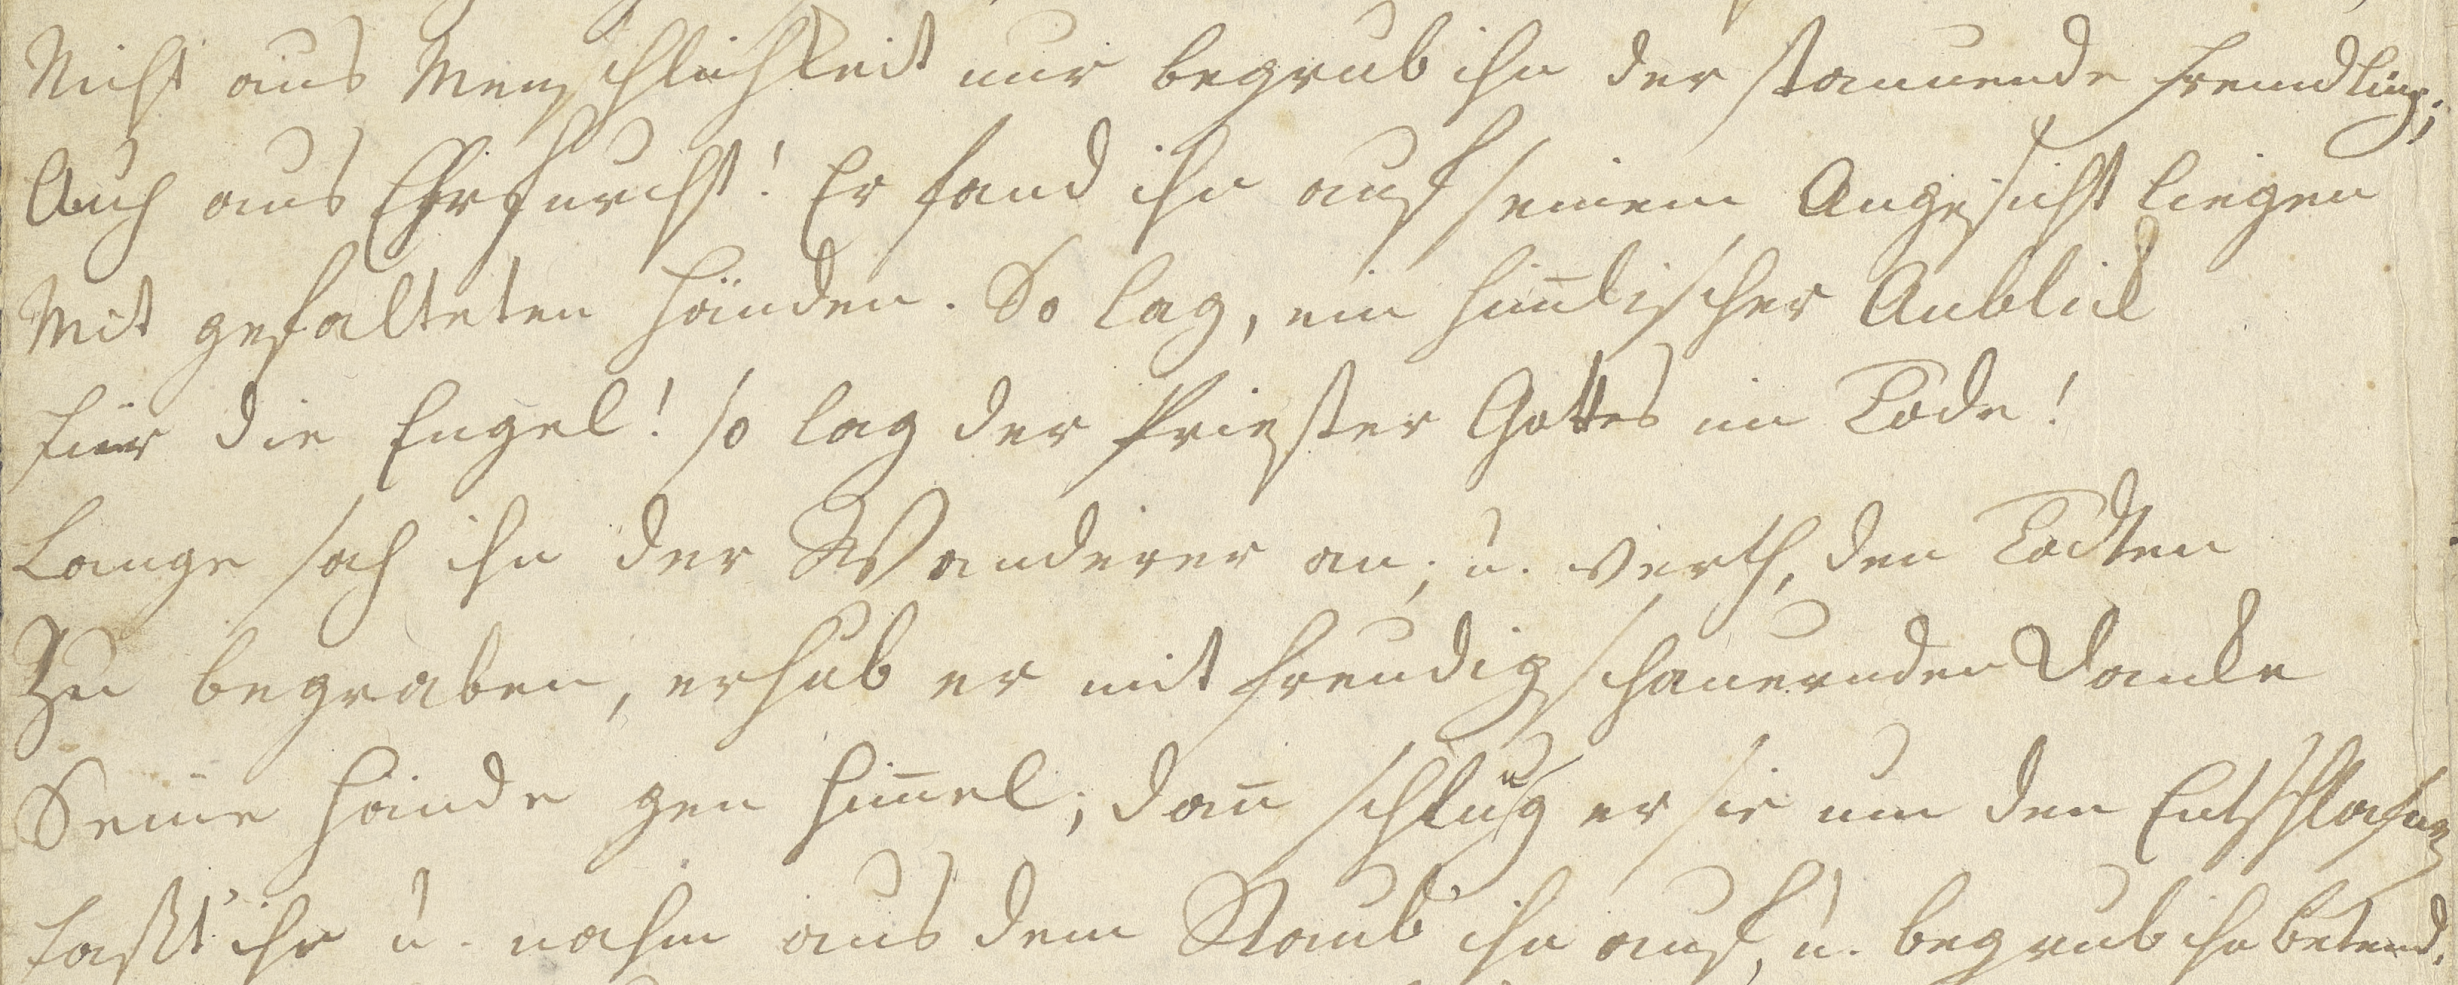 Nicht aus Menschlichkeit nur begrub ihn der staunende Fremdling;
Auch aus Ehrfurcht! Er fand ihn auf seinem Angesicht liegen
Mit gefalteten Händen. So lag, ein him̅lischer Anblick
Für die Engel! so lag der Priester Gottes im Tode!
Lange sah ihn der Wanderer an; u. werth, den Todten
Zu begraben, erhub er mit freudig schauernden Danke
Seine Hände gen Him̅el; dan̅ schlug er sie um den Entschlafnen
Faßt' ihn u. nahm aus dem Staub' ihn auf, u. begrub ihn betend.